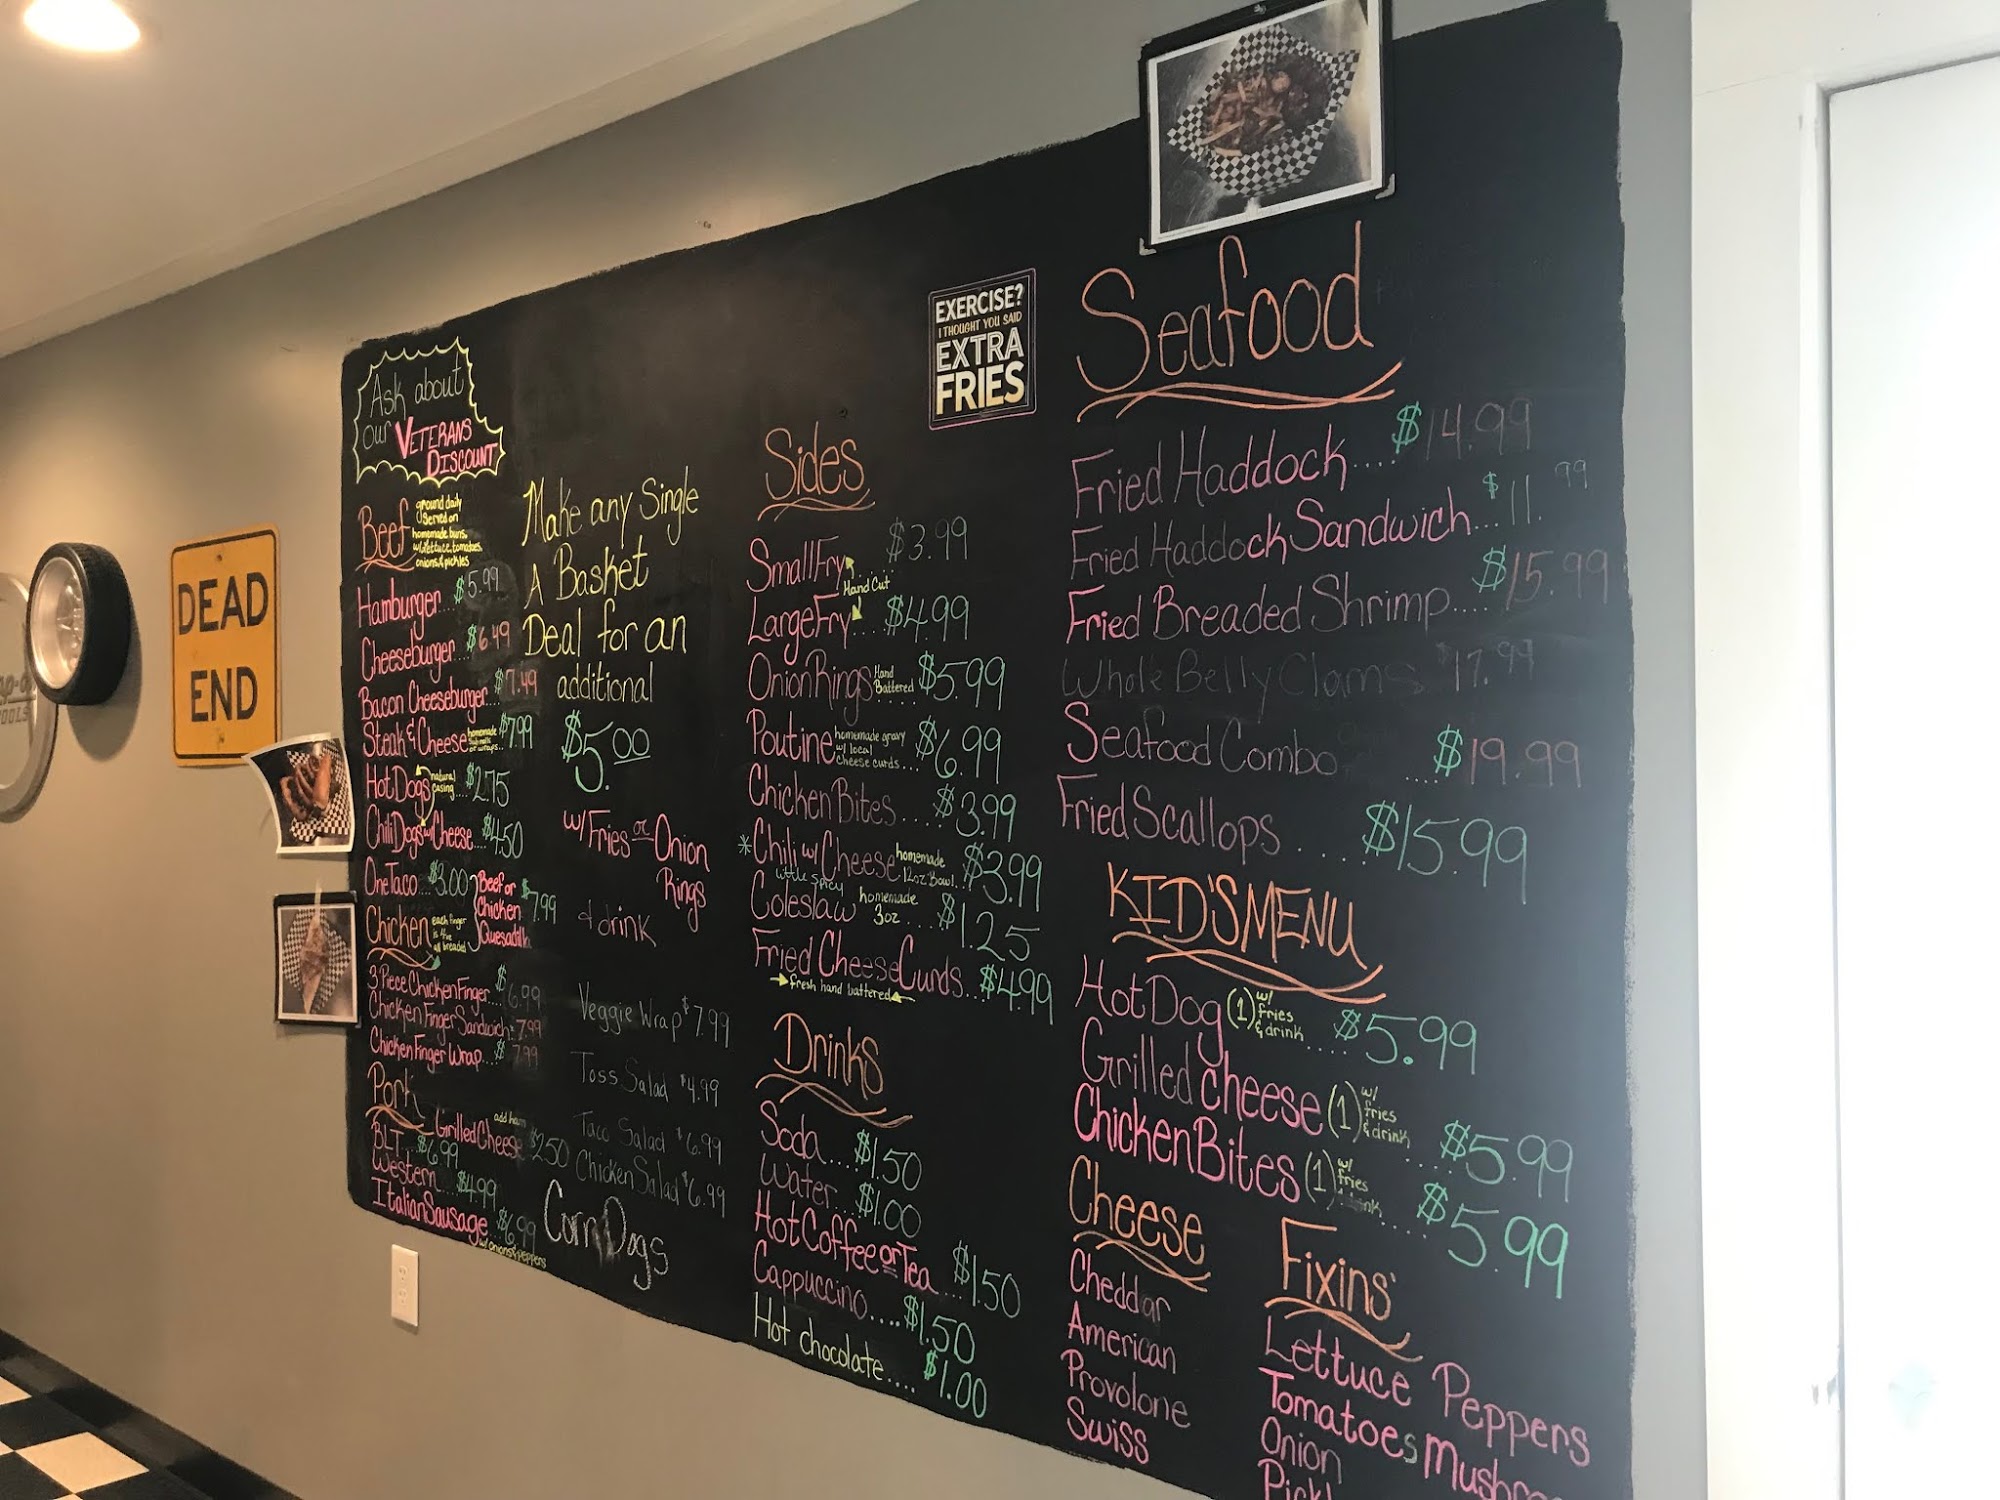 Ask about
our VETERANS
DISCOUNT
Beef ground daily
served on
homemade buns,
w/lettuce, tomatoes,
onions & pickles
Hamburger... $5.99
Cheeseburger... $6.49
Bacon Cheeseburger... $7.49
Steak & Cheese homemade $7.99
or wraps...
Hot Dogs natural
casing.... $2.75
Chili Dogs w/ Cheese.... $4.50
One Taco... $3.00
Beef or
Chicken $7.99
Quesadilla
Chicken each finger
all breaded
3 Piece Chicken Finger... $6.99
Chicken Finger Sandwich. 7.99
Chicken Finger Wrap... $7.99
Pork
Grilled Cheese add ham $2.50
BLT... $6.99
Western... $4.99
Italian Sausage... $6.99
w/onions & peppers
Make any Single
A Basket
Deal for an
additional
$5.00
w/Fries or Onion
Rings
& drink
Veggie Wrap $7.99
Toss Salad $4.99
Taco Salad $6.99
Chicken Salad $6.99
Corn Dogs
Sides
Small Fry $3.99
Hand Cut
Large Fry... $4.99
Onion Rings Hand
Battered $5.99
Poutine homemade gravy
w/ local
cheese curds... $6.99
Chicken Bites... $3.99
*Chili w/ Cheese homemade
12oz Bowl... $3.99
little spicy
Coleslaw homemade
3oz... $1.25
Fried Cheese Curds... $4.99
fresh hand battered
Drinks
Soda.... $1.50
Water... $1.00
Hot Coffee or Tea.... $1.50
Cappuccino.... $1.50
Hot chocolate.... $1.00
EXERCISE?
I THOUGHT YOU SAID
EXTRA
FRIES
Seafood
Fried Haddock.... $14.99
Fried Haddock Sandwich... $11.99
Fried Breaded Shrimp.... $15.99
Whole Belly Clams $17.99
Seafood Combo .... $19.99
Fried Scallops.... $15.99
KID'S MENU
Hot Dog (1) w/
fries
& drink..... $5.99
Grilled cheese (1) w/
fries
& drink.... $5.99
Chicken Bites (1) w/
fries
drink.... $5.99
Cheese
Cheddar
American
Provolone
Swiss
Fixins'
Lettuce Peppers
Tomatoes Mushro
Onion
Pickl
DEAD
END